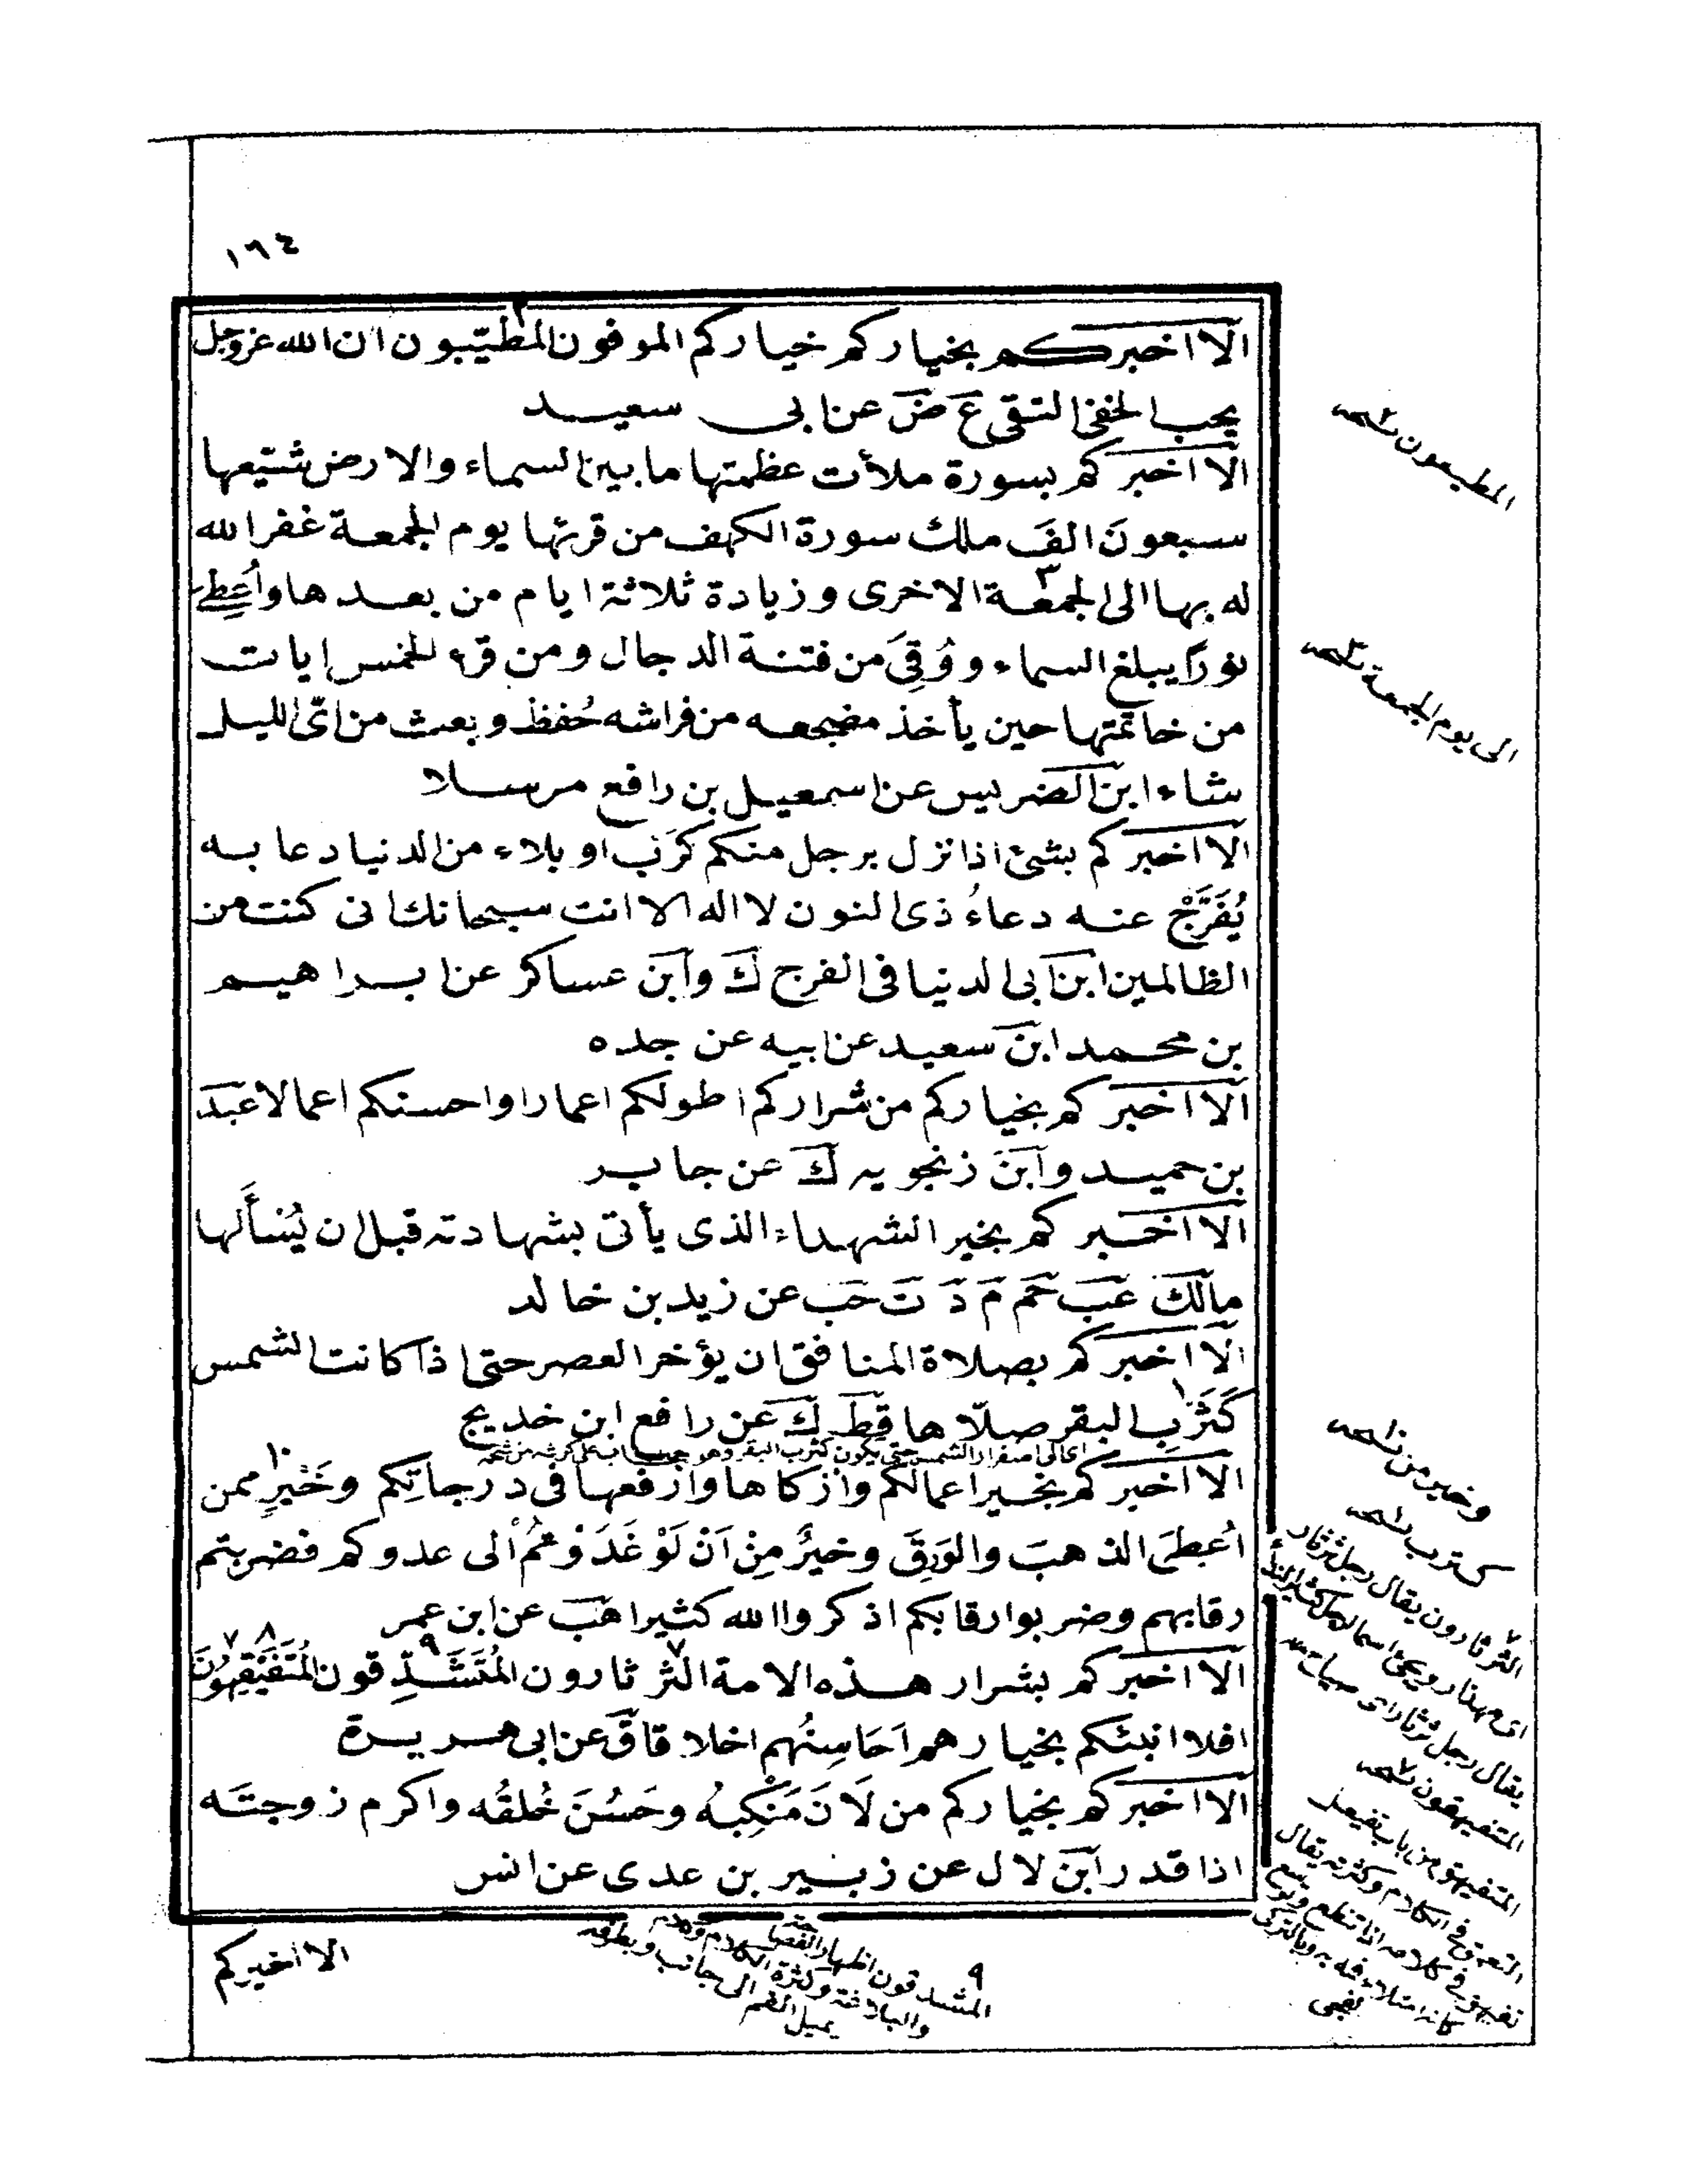 ١٦٤
الا اخبركم بخياركم خياركم الموفون المطيّبون ان الله عزوجل
يحب الخفى التقى ع ض عن ابى سعيد
الا اخبركم بسورة ملأت عظمتها ما بين السماء والارض شيّعها
سبعونَ الفَ ملك سورة الكهف من قرئها يوم الجمعة غفر الله
له بها الى الجمعة ٣ الاخرى وزيادة ثلاثة ايام من بعدها وأُعطِىَ
نورًا يبلغ السماء ووُقِىَ من فتنة الدجال ومن قرء الخمس ايات
من خاتمتها حين يأخذ مضجعه من فراشه حُفظ وبعث من اىّ الليل
شاء ابن الضريس عن اسمعيل بن رافع مرسلا
الا اخبركم بشئ اذا نزل برجل منكم كَرْبٌ او بلاء من الدنيا دعا به
يُفَرَّجْ عنه دعاءُ ذى النون لا اله الا انت سبحانك انى كنت من
الظالمين ابن ابى الدنيا فى الفرج ك وابن عساكر عن ابراهيم
بن محمد ابن سعيد عن ابيه عن جده
الا اخبركم بخياركم من شراركم اطولكم اعمارا واحسنكم اعمالا عبد
بن حميد وابن زنجويه ك عن جابر
الا اخبركم بخير الشهداء الذى يأتى بشهادته قبل ان يُسْأَلها
مالك عب حم م د ت حب عن زيد بن خالد
الا اخبركم بصلاة المنافق ان يؤخر العصر حتى اذا كانت الشمس
كَثَرْبِ ١ البقر صلّاها قط ك عن رافع ابن خديج
اى الى اصفرار الشمس حتى يكون كثرب البقر وهو
الا اخبركم بخير اعمالكم وازكاها وارفعها فى درجاتِكم وخَيْرٍ ١٠ ممن
اَعطىَ الذهبَ والوَرِقَ وخيرٌ مِنْ اَنْ لَوْ غَدَوْتُمْ الى عدوكم فضربتم
رقابهم وضربوا رقابكم اذكروا الله كثيرا هب عن ابن عمر
الا اخبركم بشرار هذه الامة الثرثارون ٧ المُتَشَدِّقون ٩ المُتَفَيْقِهُونَ ٨ ٧
افلا انبئكم بخيارهم اَحَاسِنُهم اخلاقا ق عن ابى هريرة
الا اخبركم بخياركم من لَانَ مَنْكِبهُ وحَسُنَ خُلقُه واكرم زوجتَه
اذا قدر ابن لال عن زبير بن عدى عن انس
الا اخيركم
المطيعون نسخه
الى يوم الجمعة نسخه
وخير من نسخه
كترب نسخه
الثرثارون يقال رجل ثرثار
يقال رجل ثرثار اى صياح
المتفيهقون نسخه
المتفيهق من باب تفيعل
التعمق فى الكلام وكثرته يقال
تفيهق فى كلامه اذا تنطع وتوسع
٩
المتشدقون اظهار
والبلاغة وكثرة الكلام
يميل الفم الى جانب